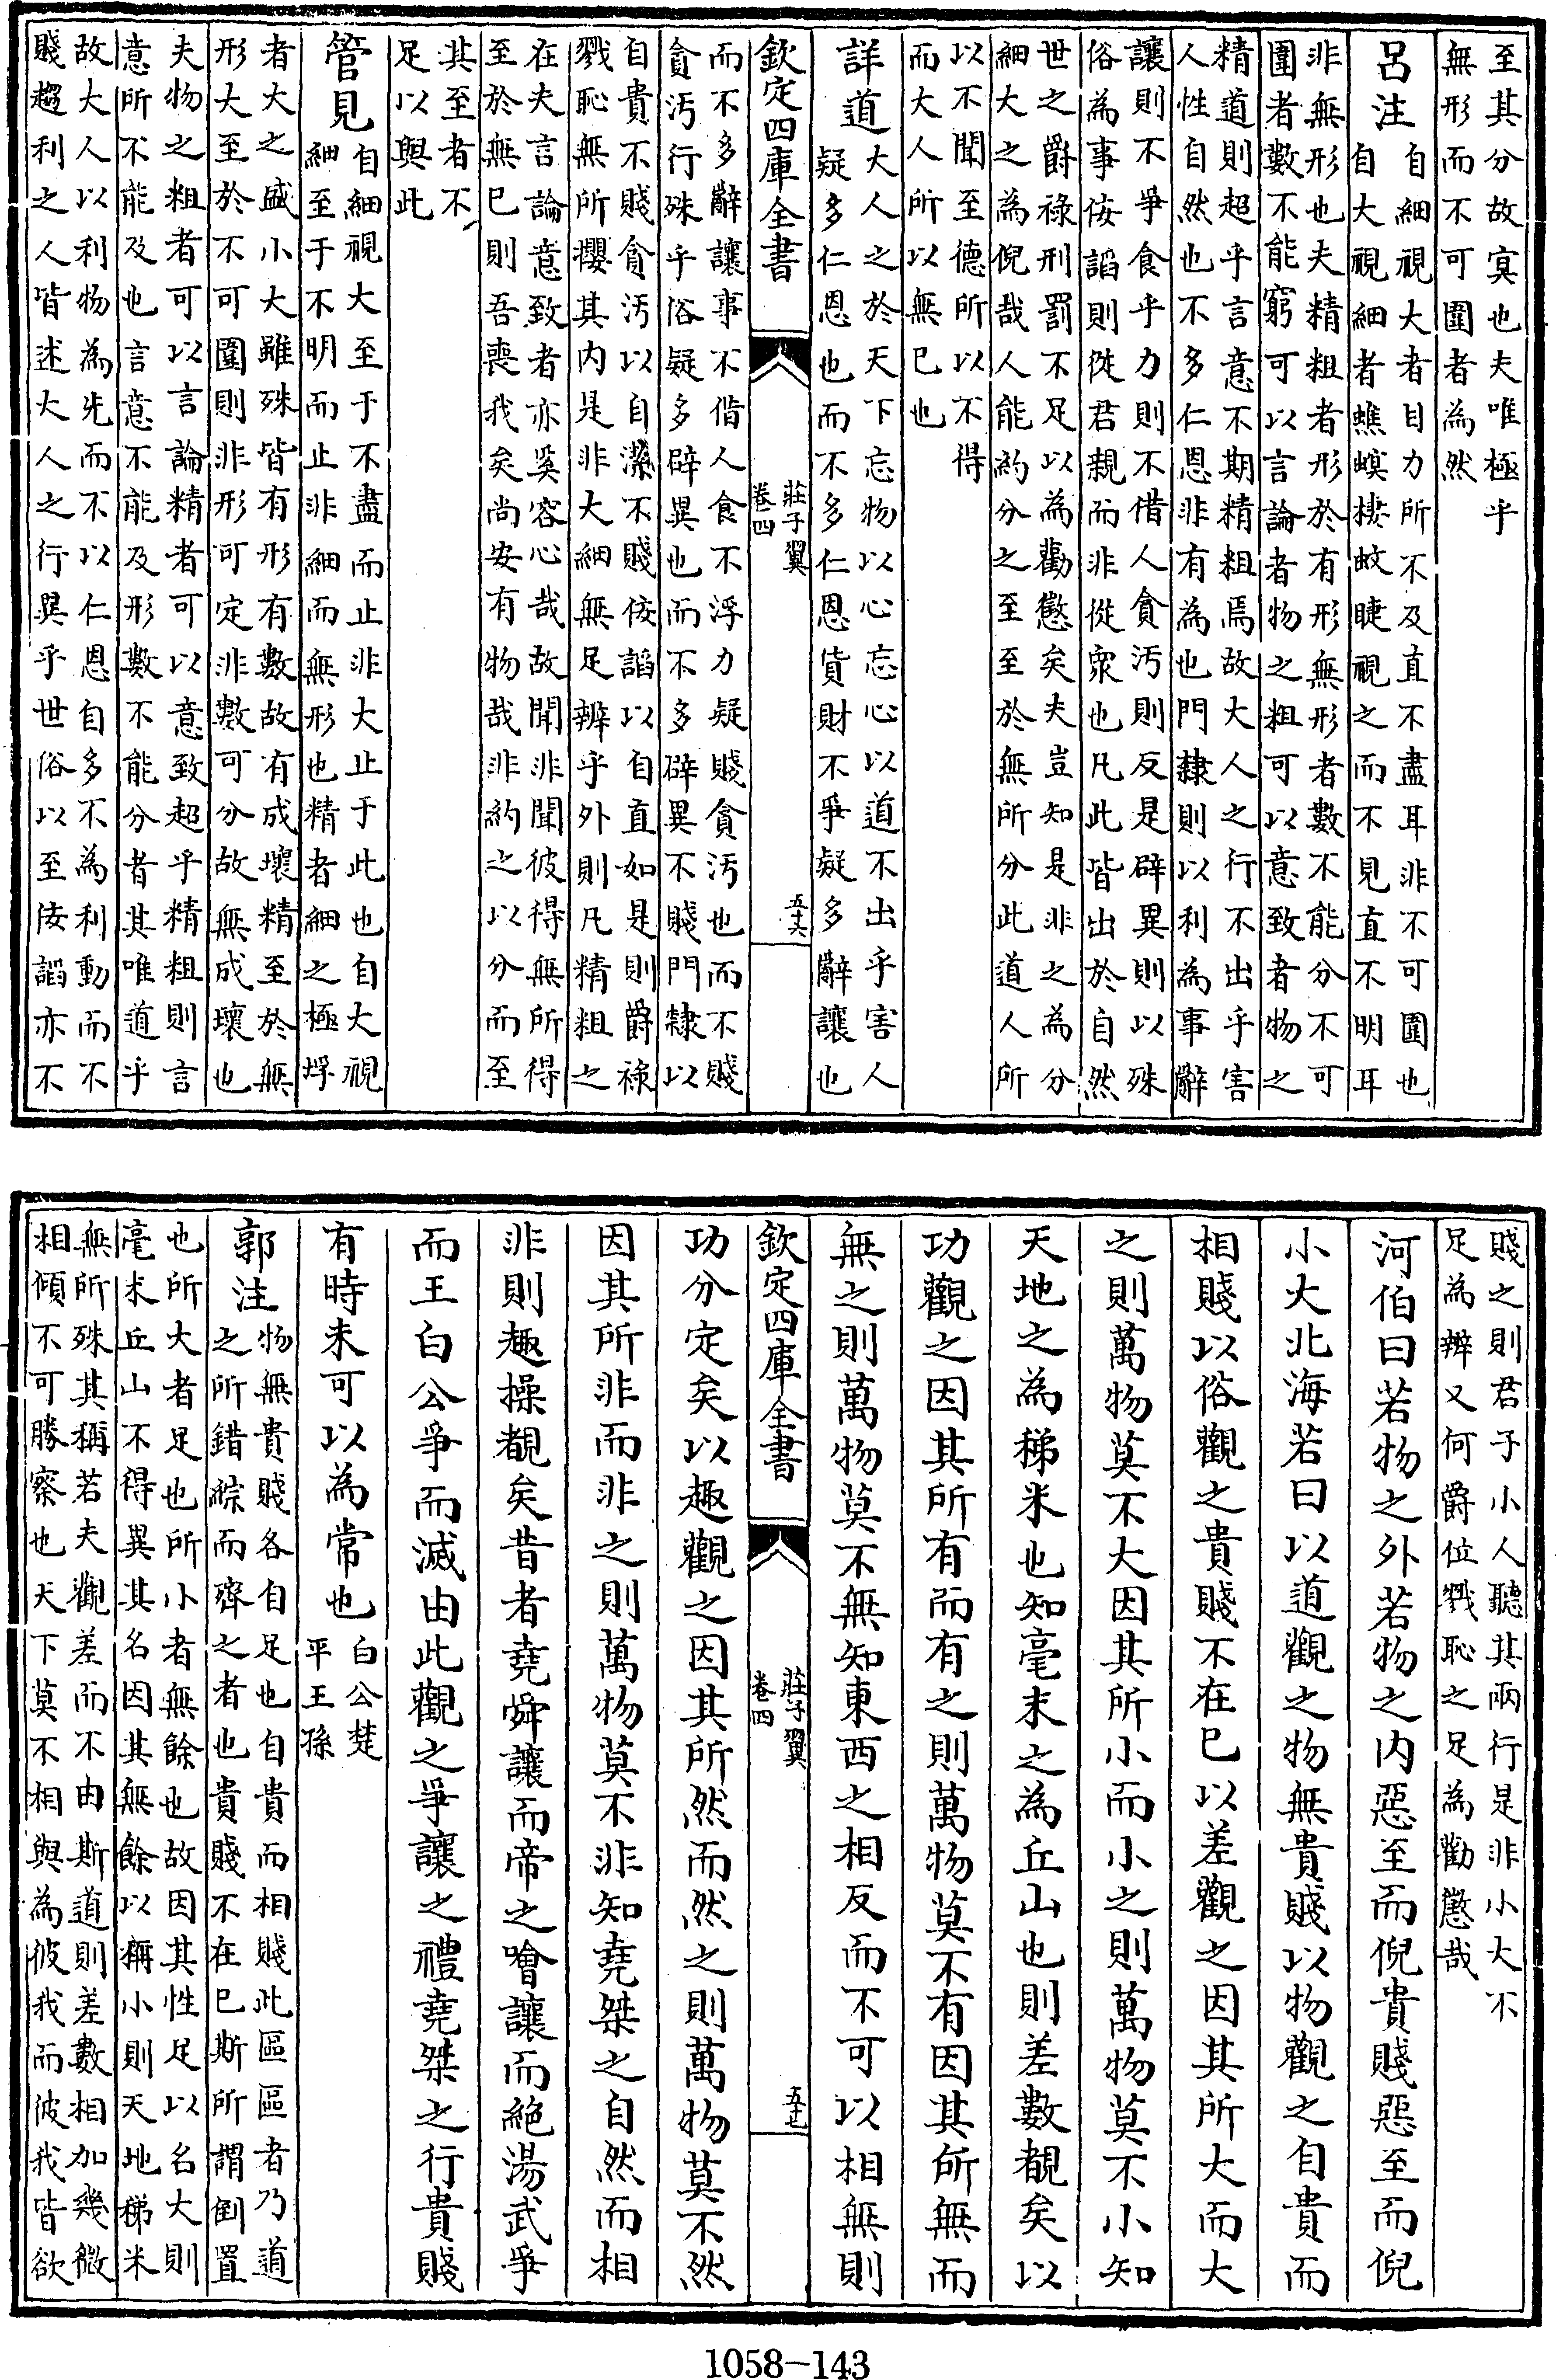 至其分故㝠也夫唯極乎
無形而不可圍者為然
呂注
自細視大者目力所不及直不盡耳非不可圍也
自大視細者蟭螟棲蚊睫視之而不見直不明耳
非無形也夫精粗者形於有形無形者數不能分不可
圍者數不能窮可以言論者物之粗可以意致者物之
精道則超乎言意不期精粗焉故大人之行不出乎害
人性自然也不多仁恩非有為也門隸則以利為事辭
讓則不爭食乎力則不借人貪汚則反是辟異則以殊
俗為事佞諂則從君親而非從衆也凡此皆出於自然
世之爵祿刑罰不足以為勸懲矣夫豈知是非之為分
細大之為倪哉人能約分之至至於無所分此道人所
以不聞至德所以不得
而大人所以無已也
詳道
大人之於天下忘物以心忘心以道不出乎害人
疑多仁恩也而不多仁恩貨財不爭疑多辭讓也
欽定四庫全書
莊子翼
卷四
五十六
而不多辭讓事不借人食不浮力疑賤貪汚也而不賤
貪汚行殊乎俗疑多辟異也而不多辟異不賤門隸以
自貴不賤貪汚以自潔不賤佞諂以自直如是則爵祿
戮恥無所攖其内是非大細無足辨乎外則凡精粗之
在夫言論意致者亦奚容心哉故聞非聞彼得無所得
至於無已則吾喪我矣尚安有物哉非約之以分而至
其至者不
足以與此
管見
自細視大至于不盡而止非大止于此也自大視
細至于不明而止非細而無形也精者細之極垺
者大之盛小大雖殊皆有形有數故有成壞精至於無
形大至於不可圍則非形可定非數可分故無成壞也
夫物之粗者可以言論精者可以意致超乎精粗則言
意所不能及也言意不能及形數不能分者其唯道乎
故大人以利物為先而不以仁恩自多不為利動而不
賤趨利之人皆述大人之行異乎世俗以至佞諂亦不
賤之則君子小人聽其兩行是非小大不
足為辨又何爵位戮恥之足為勸懲哉
河伯曰若物之外若物之内惡至而倪貴賤惡至而倪
小大北海若曰以道觀之物無貴賤以物觀之自貴而
相賤以俗觀之貴賤不在已以差觀之因其所大而大
之則萬物莫不大因其所小而小之則萬物莫不小知
天地之為稊米也知毫末之為丘山也則差數覩矣以
功觀之因其所有而有之則萬物莫不有因其所無而
無之則萬物莫不無知東西之相反而不可以相無則
欽定四庫全書
莊子翼
卷四
五十七
功分定矣以趣觀之因其所然而然之則萬物莫不然
因其所非而非之則萬物莫不非知堯桀之自然而相
非則趣操覩矣昔者堯舜讓而帝之噲讓而絶湯武爭
而王白公爭而滅由此觀之爭讓之禮堯桀之行貴賤
有時未可以為常也
白公楚
平王孫
郭注
物無貴賤各自足也自貴而相賤此區區者乃道
之所錯綜而齊之者也貴賤不在已斯所謂倒置
也所大者足也所小者無餘也故因其性足以名大則
毫末丘山不得異其名因其無餘以稱小則天地稊米
無所殊其稱若夫觀差而不由斯道則差數相加幾微
相傾不可勝察也天下莫不相與為彼我而彼我皆欲
1058-143